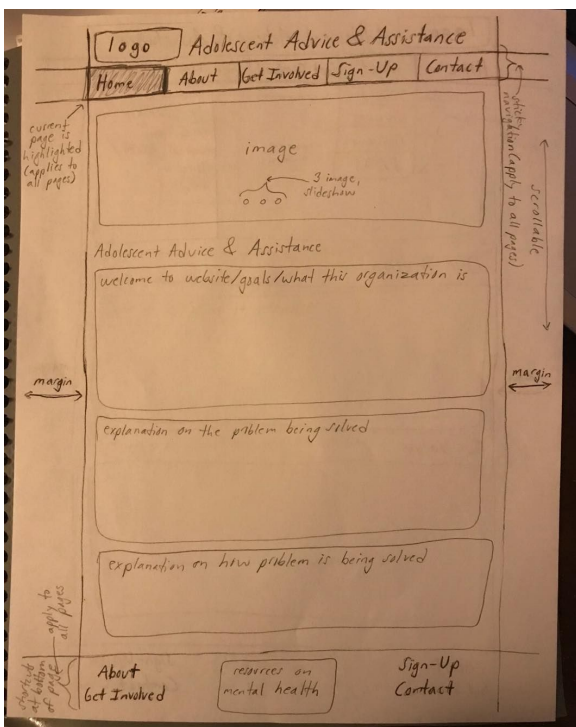 logo
Adolescent Advice & Assistance
Home
About
Get Involved
Sign-Up
Contact
current
page is
highlighted
(applies to
all pages)
sticky
navigation (apply to all pages)
scrollable
image
3 image,
slideshow
Adolescent Advice & Assistance
welcome to website/goals/what this organization is
margin
margin
explanation on the problem being solved
explanation on how problem is being solved
shortcuts
at bottom
of page
apply to
all pages
About
Get Involved
resources on
mental health
Sign-Up
Contact